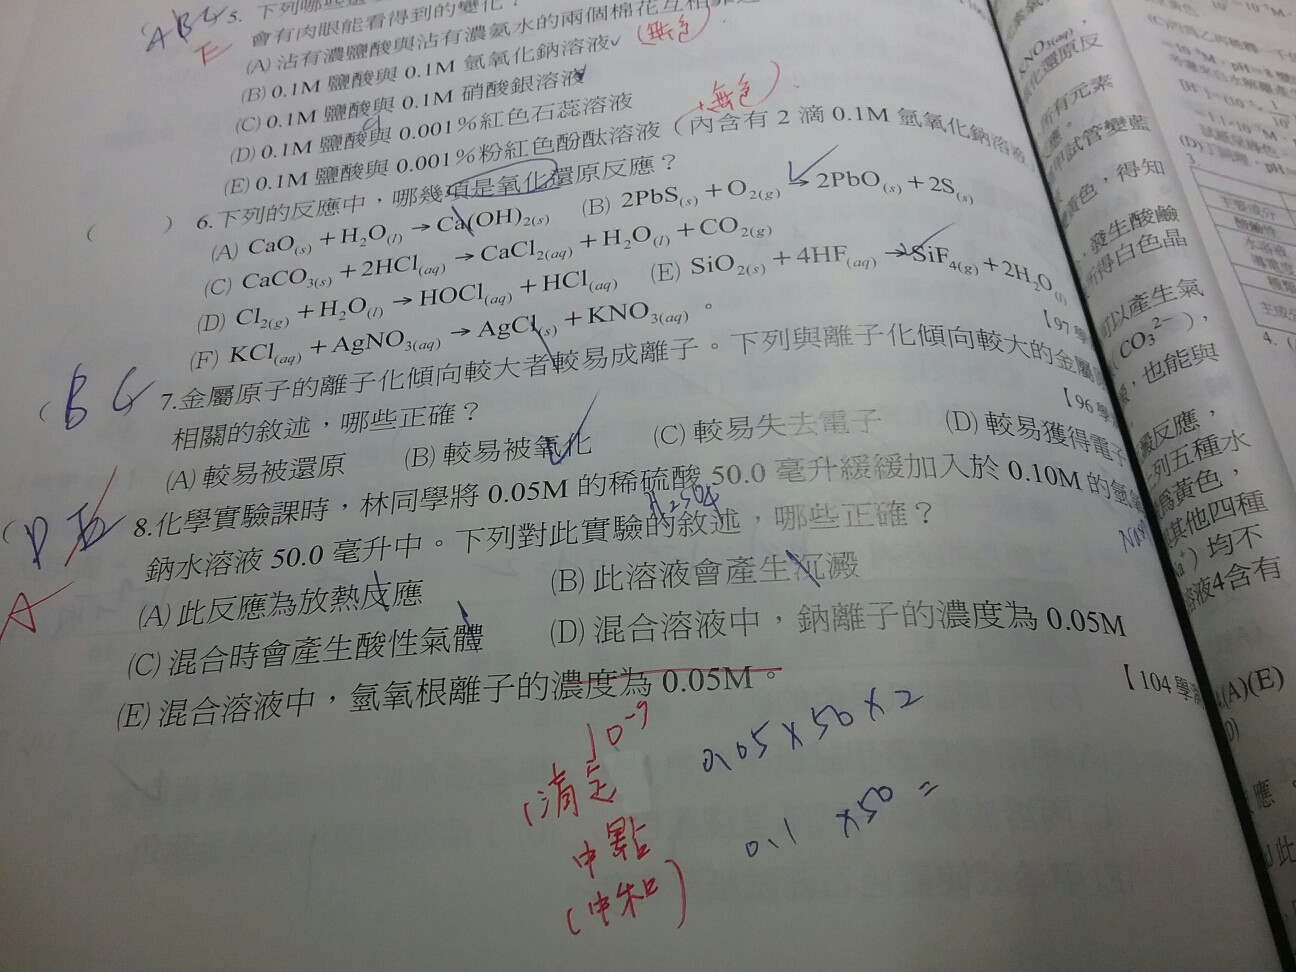 ABG 5. 下列哪些
E
會有肉眼能看得到的變化？
(A) 沾有濃鹽酸與沾有濃氨水的兩個棉花互相靠近
(B) 0.1M 鹽酸與 0.1M 氫氧化鈉溶液 (無色)
(C) 0.1M 鹽酸與 0.1M 硝酸銀溶液
(D) 0.1M 鹽酸與 0.001%紅色石蕊溶液
無色)
(E) 0.1M 鹽酸與 0.001%粉紅色酚酞溶液（內含有 2 滴 0.1M 氫氧化鈉溶液）
( ) 6.下列的反應中，哪幾項是氧化還原反應？
(A) CaO(s) + H2O(l) → Ca(OH)2(s) (B) 2PbS(s) + O2(g) → 2PbO(s) + 2S(s)
(C) CaCO3(s) + 2HCl(aq) → CaCl2(aq) + H2O(l) + CO2(g)
(D) Cl2(g) + H2O(l) → HOCl(aq) + HCl(aq) (E) SiO2(s) + 4HF(aq) → SiF4(g) + 2H2O(l)
(F) KCl(aq) + AgNO3(aq) → AgCl(s) + KNO3(aq)。
【97 學
( B C 7.金屬原子的離子化傾向較大者較易成離子。下列與離子化傾向較大的金屬
相關的敘述，哪些正確？
【96 學
(A) 較易被還原 (B) 較易被氧化 (C) 較易失去電子 (D) 較易獲得電子
( D E 8.化學實驗課時，林同學將 0.05M 的稀硫酸 50.0 毫升緩緩加入於 0.10M 的氫氧
A
H2SO4
鈉水溶液 50.0 毫升中。下列對此實驗的敘述，哪些正確？
(A) 此反應為放熱反應 (B) 此溶液會產生沉澱
(C) 混合時會產生酸性氣體 (D) 混合溶液中，鈉離子的濃度為 0.05M
(E) 混合溶液中，氫氧根離子的濃度為 0.05M。
【104 學
10⁻⁹
(滴定
中點
(中和)
0.05 × 50 × 2
0.1 × 50 =
KNO3(aq)
化還原反
所有元素
試管變藍
黃色，得知
發生酸鹼
所得白色晶
可以產生氣
(CO3²⁻)，
，也能與
澱反應，
列五種水
為黃色，
其他四種
均不
溶液4含有
(A)(E)
(D)
應。
此
主要成分
酸鹼性
水溶液
導電度
3.
4.